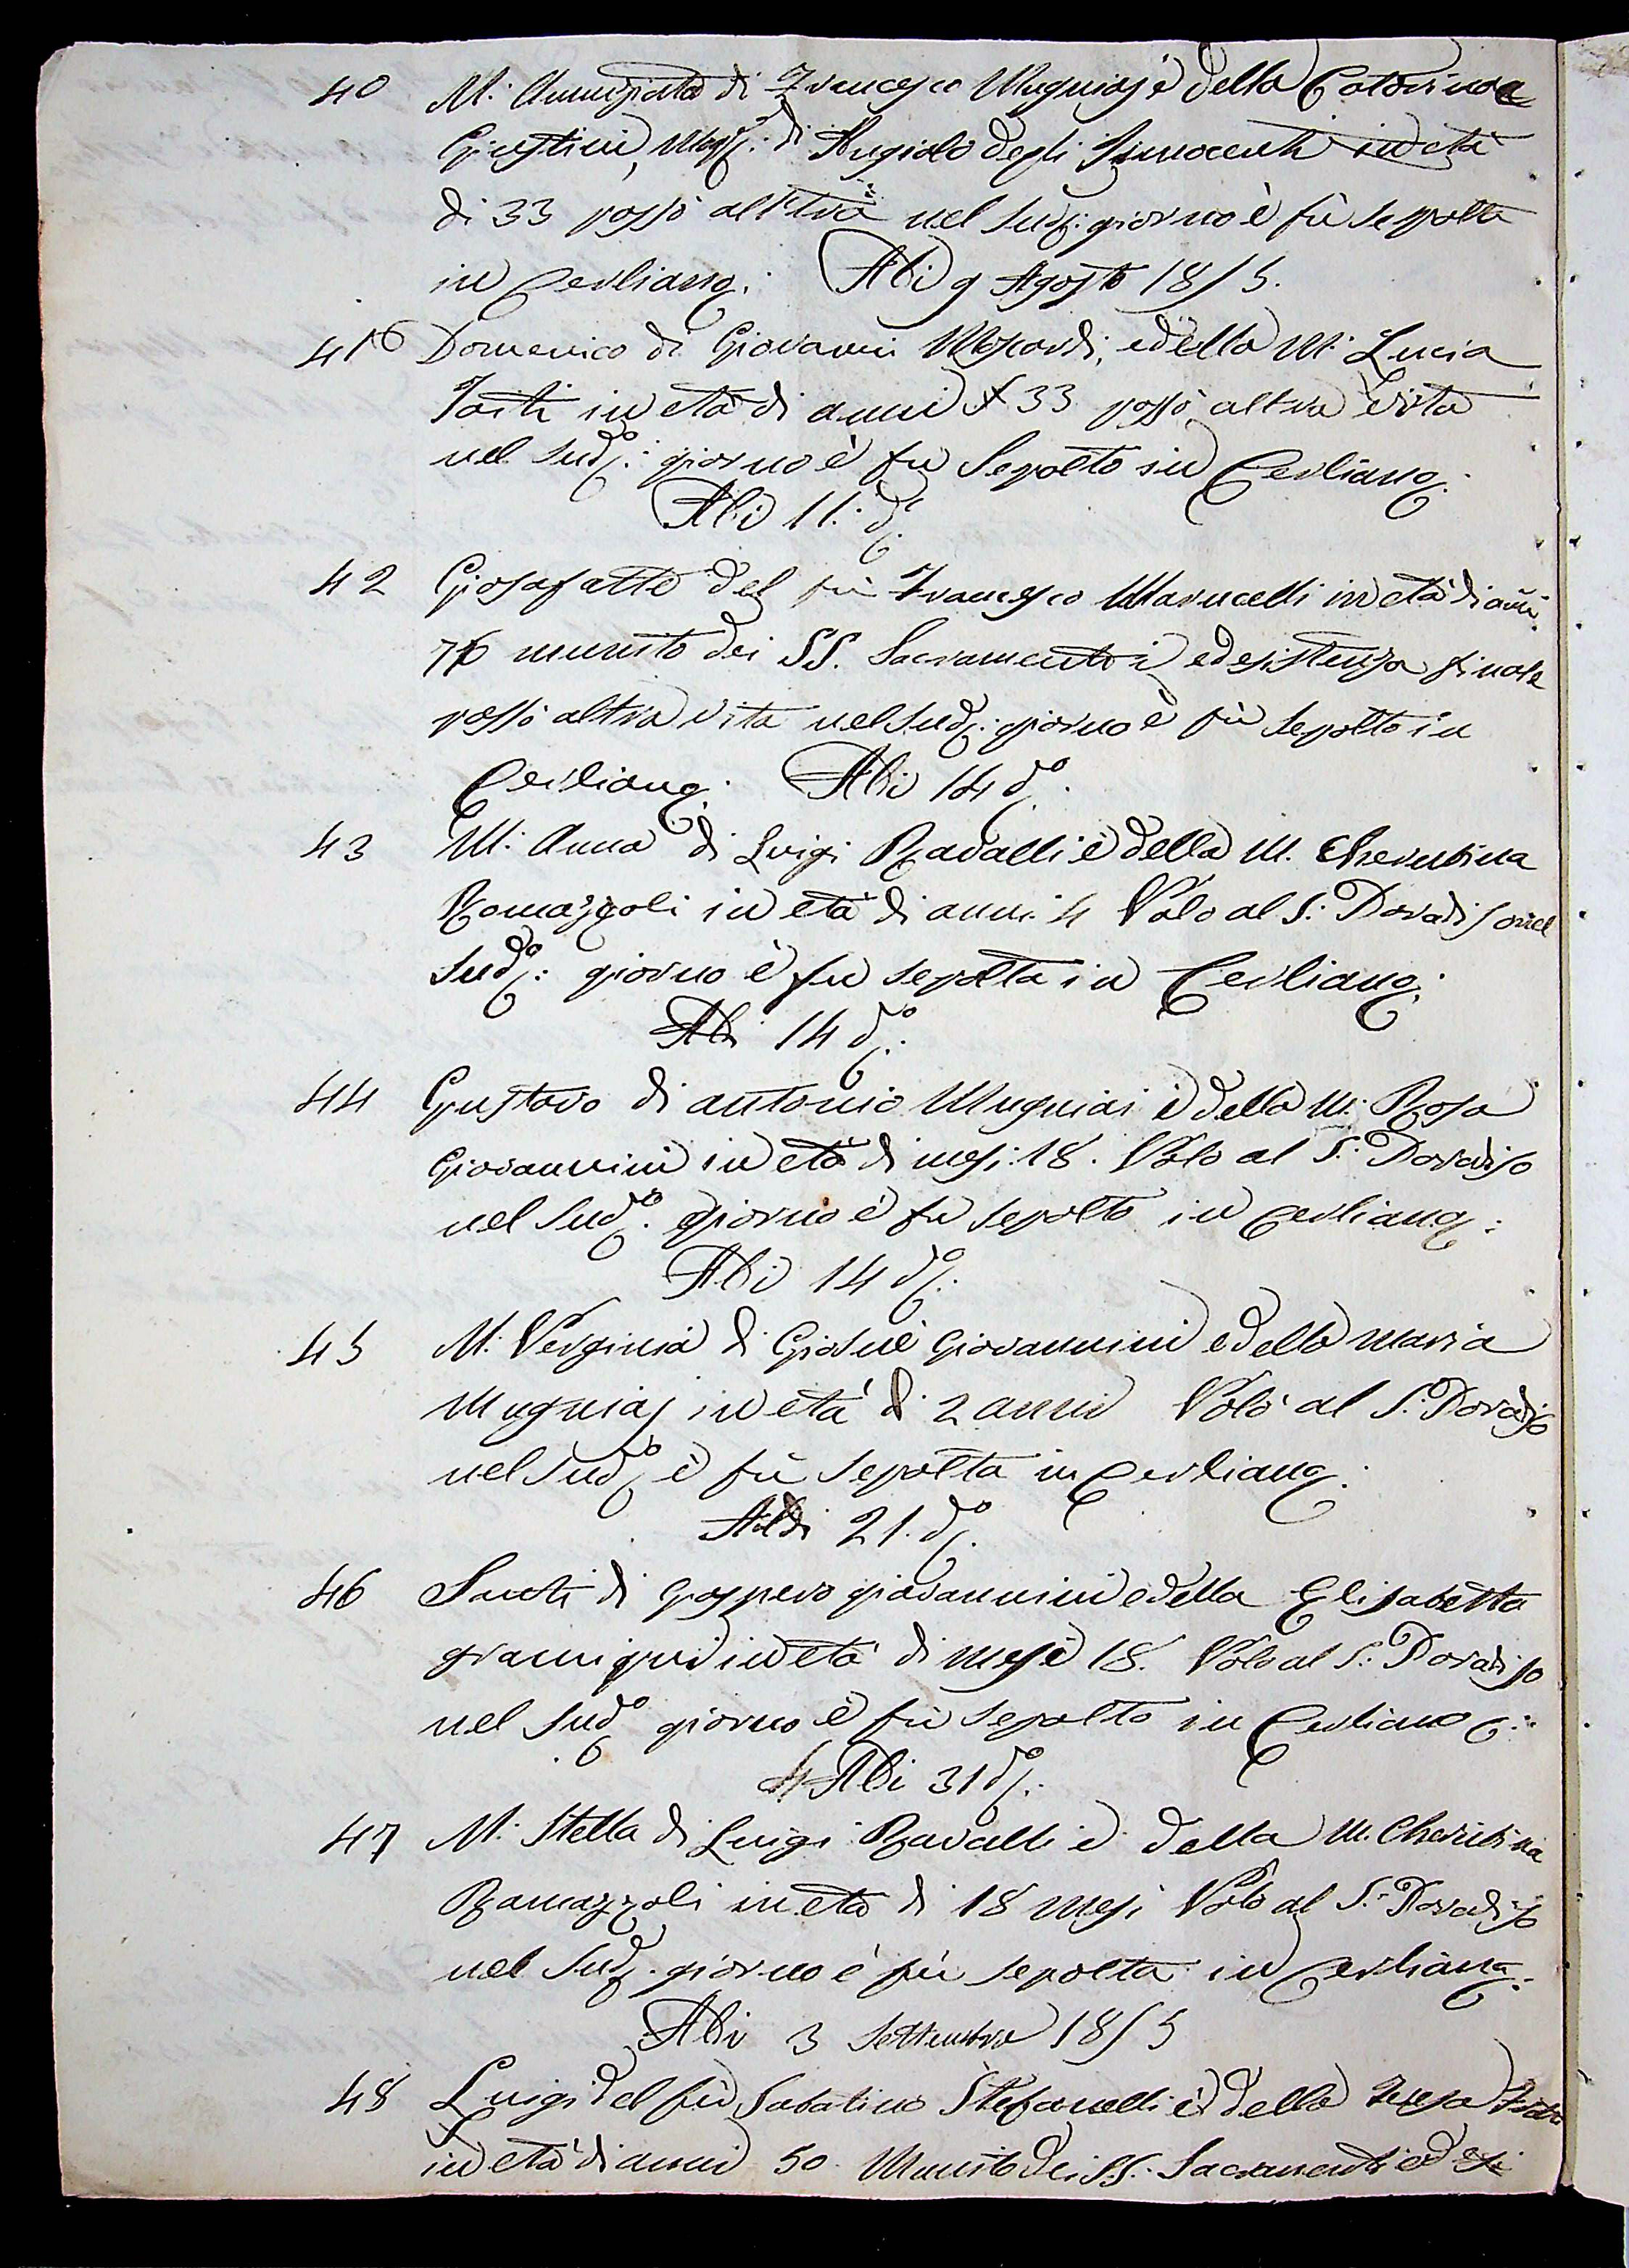 40 M: Annunziata di Francesco Mugniaj è della Catterina
Giustini, Mog: di Angiolo degli Innocenti in età
di 33 passò all'tra nel sudº: giorno è fù sepolta
in Cerliano: Adi 9 Agosto 1855.
41 Domenico di Giovanni, e della M: Lucia
in età di anni 33 passò altra vita
nel sudº: giorno è fù Sepolto in Cerliano:
Adi 11: dº
42 Giosafatte del fù Francesco Marucelli in età di anni
76 munito dei SS. Sacramenti ed esistenza finale
passò altra vita nel sudº: giorno è fù sepolto in
Cerliano: Adi 14 dº:
43 M: Anna di Luigi Ravalli è della M. Cherubina
Romazzoli in età di anni 4 Volò al S: Paradiso nel
sudº: giorno è fu sepolta in Cerliano:
Adi 14 dº:
44 Gustavo di antonio Mugniai è della M: Rosa
Giovannini in età di mesi: 18. Volò al S: Paradiso
nel sudº: giorno è fu sepolto in Cerliano:
Adi 14 dº:
45 M: Verginia di Giosuè Giovannini e della maria
Mugniaj in età di 2 anni Volò al S: Paradiso
nel sudº è fù sepolta in Cerliano:
Addi 21. dº:
46 Santi di Gasparo giovannini e della Elisabetta
in età di mesi 18. Volò al S: Paradiso
nel sudº giorno è fù sepolto in Cerliano:
Adi 31 dº:
47 M: Stella di Luigi Ravalli è della M. Cherubina
Ramazzoli in età di 18 mesi Volò al S: Paradiso
nel sudº: giorno è fù sepolta in Cerliano:
Adi 3 Settembre 1855
48 Luigi del fù Sabatino Stefanelli è della
in età di anni 50 Munito dei SS. Sacramenti ed